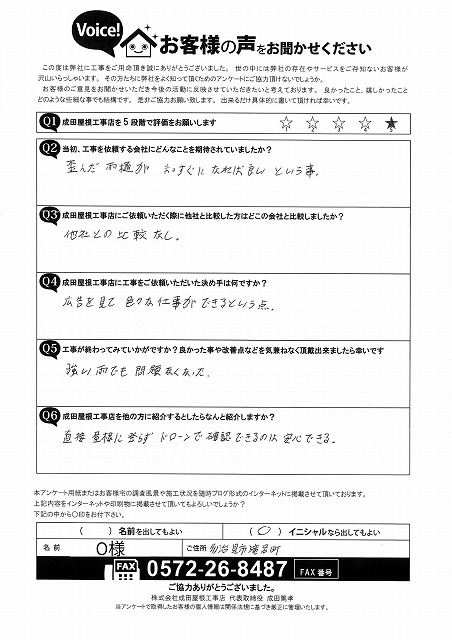 Voice!
お客様の声をお聞かせください
この度は弊社に工事をご用命頂き誠にありがとうございました。 世の中には弊社の存在やサービスをご存知ないお客様が
沢山いらっしゃいます。 その方たちに弊社をよく知って頂くためのアンケートにご協力頂けないでしょうか。
お客様のご意見をお聞かせいただき今後の活動に反映させていただきたいと考えております。 良かったこと、嬉しかったこと
どのような些細な事でも結構です。 是非ご協力お願い致します。 出来るだけ具体的に書いて頂ければ幸いです。
Q1 成田屋根工事店を5段階で評価をお願いします ☆ ☆ ☆ ☆ ★
Q2 当初、工事を依頼する会社にどんなことを期待されていましたか?
歪んだ雨樋が まっすぐになれば良い という事。
Q3 成田屋根工事店にご依頼いただく際に他社と比較した方はどこの会社と比較しましたか?
他社との比較なし。
Q4 成田屋根工事店に工事をご依頼いただいた決め手は何ですか?
広告を見て 色々な仕事ができるという点。
Q5 工事が終わってみていかがですか?良かった事や改善点などを気兼ねなく頂戴出来ましたら幸いです
強い雨でも 問題なくなった。
Q6 成田屋根工事店を他の方に紹介するとしたらなんと紹介しますか?
直接 屋根に登らず ドローンで確認できるのは 安心できる。
本アンケート用紙またはお客様宅の調査風景や施工状況を随時ブログ形式のインターネットに掲載させて頂いております。
上記内容をインターネットや印刷物に掲載させて頂いてもよろしいでしょうか?
下記の中から〇印をお付下さい。
( ) 名前を出してもよい ( 〇 ) イニシャルなら出してもよい
名 前 O様 ご住所 多治見市滝呂町
FAX 0572-26-8487 FAX 番号
ご協力ありがとうございました。
株式会社成田屋根工事店 代表取締役 成田篤孝
当アンケートで取得したお客様の個人情報は関係法規に基づき厳正に管理いたします。